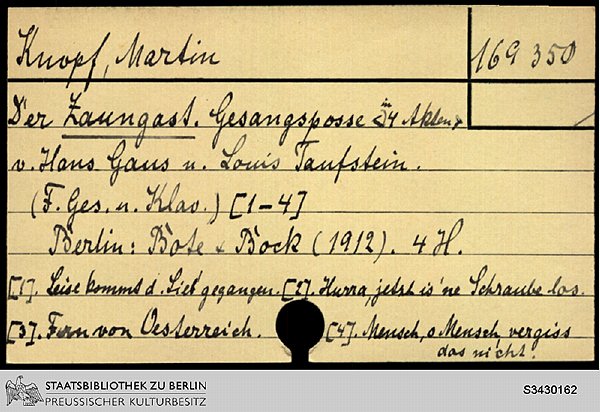 Knopf, Martin
169 350
Der Zaungast. Gesangsposse <in 4 Akten>
v. Hans Gaus u. Louis Taufstein.
(F. Ges. u. Klav.) [1-4]
Berlin: Bote & Bock (1912). 4 H.
[1]. Leise kommt d. Lieb' gegangen. [2]. Hurra, jetzt is' ne Schraube los.
[3]. Fern von Oesterreich. [4]. Mensch, o Mensch, vergiss
das nicht!
STAATSBIBLIOTHEK ZU BERLIN
PREUSSISCHER KULTURBESITZ
S3430162